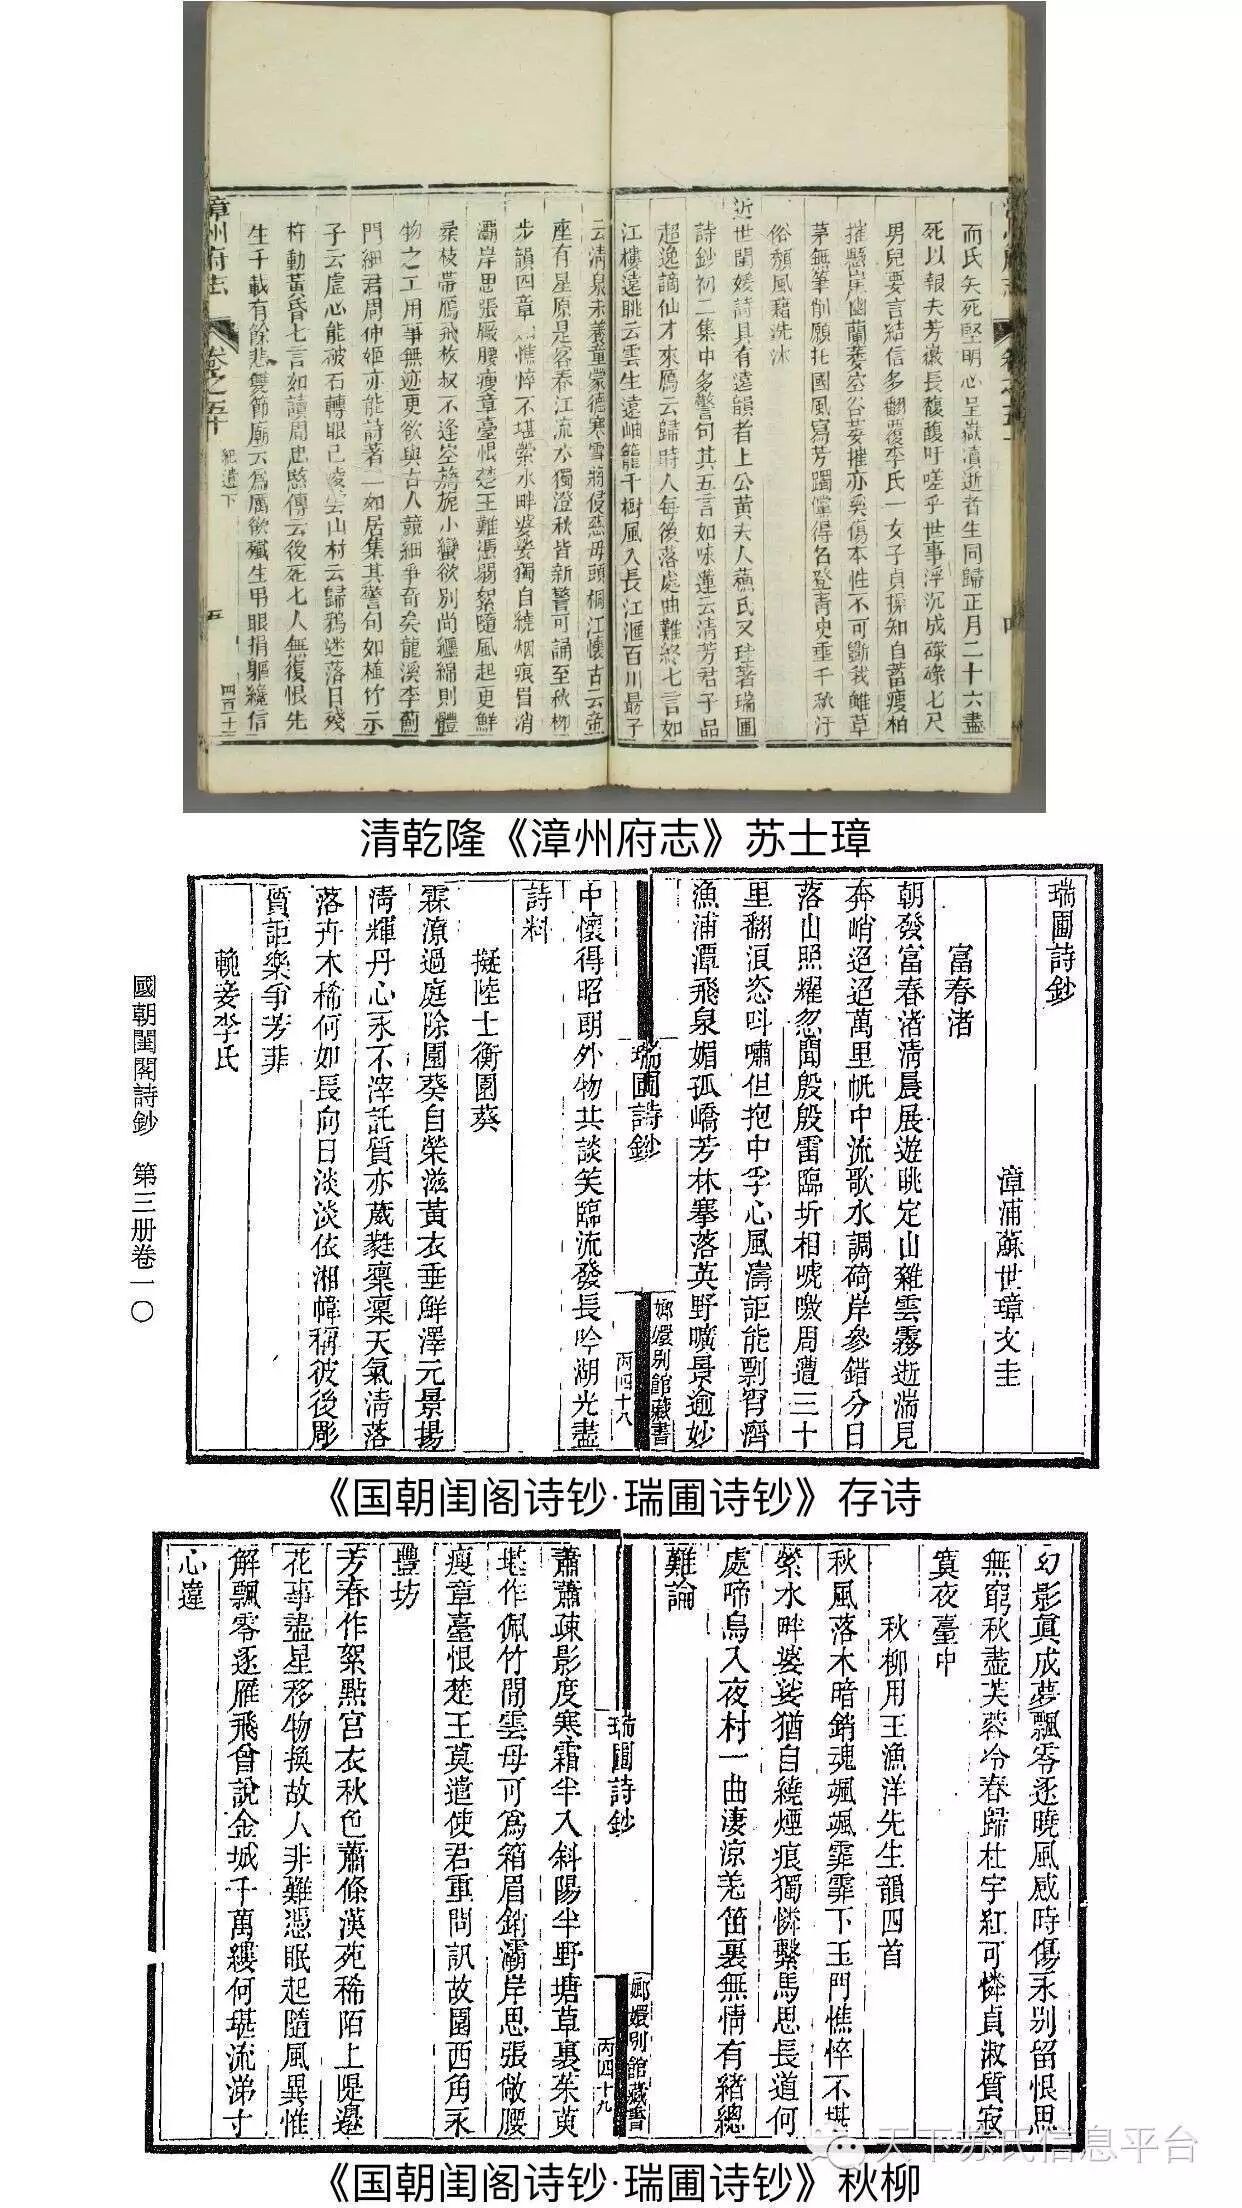 而氏矢死堅明心呈嶽瀆逝者生同歸正月二十六盡
死以報夫芳徽長馥馥吁嗟乎世事浮沉成碌碌七尺
男兒要言結信多翻覆李氏一女子貞操知自蓄瘦柏
摧懸崖幽蘭萎空谷萎摧亦奚傷本性不可斷我雖草
茅無筆削願托國風寫芳躅儻得名登青史垂千秋汙
俗頹風藉洗冰
近世閨媛詩具有遠韻者上公黃夫人蘓氏又珪著瑞圃
詩鈔初二集中多警句其五言如味蓮云清芳君子品
超逸謫仙才來鴈云歸時人每後落處曲難終七言如
江樓遠眺云雲生遠岫籠千樹風入長江滙百川最子
漳州府志
卷之五十
紀遺下
五
四百十三
云清泉未養童蒙德寒雪將侵慈母頭桐江懷古云帝
座有星原是客春江流水獨澄秋皆新警可誦至秋柳
步韻四章
憔悴不堪縈水畔婆娑獨自繞烟痕眉消
灞岸思張厰腰瘦章臺恨楚王難憑弱絮隨風起更鮮
柔枝帶鴈飛枚叔不逢空旖旎小蠻欲別尚纒綿則體
物之工用事無迹更欲與古人競細爭奇矣龍溪李蓟
門細君周仲姬亦能詩著一如居集其警句如植竹示
子云虛心能破石轉眼已凌雲山村云歸鴉迷落日殘
杵動黃昏七言如讀周忠愍傳云後死七人無復恨先
生千載有餘悲雙節廟云為厲欲殲生甲眼捐軀纔信
清乾隆《漳州府志》苏士璋
瑞圃詩鈔
漳浦蘇世璋文圭
富春渚
朝發富春渚清晨展遊眺定山雜雲霧逝湍見
奔峭迢迢萬里帆中流歌水調碕岸參錯分日
落山照耀忽聞殷殷雷臨圻相唬噭周遭三十
里翻浪恣呌嘯但抱中孚心風濤詎能剽宵濟
漁浦潭飛泉媚孤嶠芳林搴落英野曠景逾妙
瑞圃詩鈔
嫏嬛別館藏書
丙四十八
中懷得昭朗外物共談笑臨流發長吟湖光盡
詩料
擬陸士衡園葵
霖潦過庭除園葵自榮滋黃衣垂鮮澤元景揚
清輝丹心永不滓託質亦葳蕤稟稟天氣清落
落卉木稀何如長向日淡淡依湘幃稱彼後彫
質詎樂爭芳菲
輓妾李氏
國朝閨閣詩鈔 第三册卷一〇
《国朝闺阁诗钞·瑞圃诗钞》存诗
幻影眞成夢飄零逐曉風感時傷永别留恨思
無窮秋盡芙蓉冷春歸杜宇紅可憐貞淑質寂
寞夜臺中
秋柳用王漁洋先生韻四首
秋風落木暗銷魂颯颯霏霏下玉門憔悴不堪
縈水畔婆娑猶自繞煙痕獨憐繫馬思長道何
處啼烏入夜村一曲淒涼羌笛裏無情有緖總
難論
瑞圃詩鈔
嫏嬛別館藏書
丙四十九
蕭蕭疎影度寒霜半入斜陽半野塘草裏茱萸
堪作佩竹間雲母可爲箱眉銷灞岸思張敞腰
瘦章臺恨楚王莫遣使君重問訊故園西角永
豐坊
芳春作絮點宮衣秋色蕭條漢苑稀陌上隄邊
花事盡星移物換故人非難憑眠起隨風異惟
解飄零逐雁飛曾說金城千萬縷何堪流涕寸
心違
天下苏氏信息平台
《国朝闺阁诗钞·瑞圃诗钞》秋柳